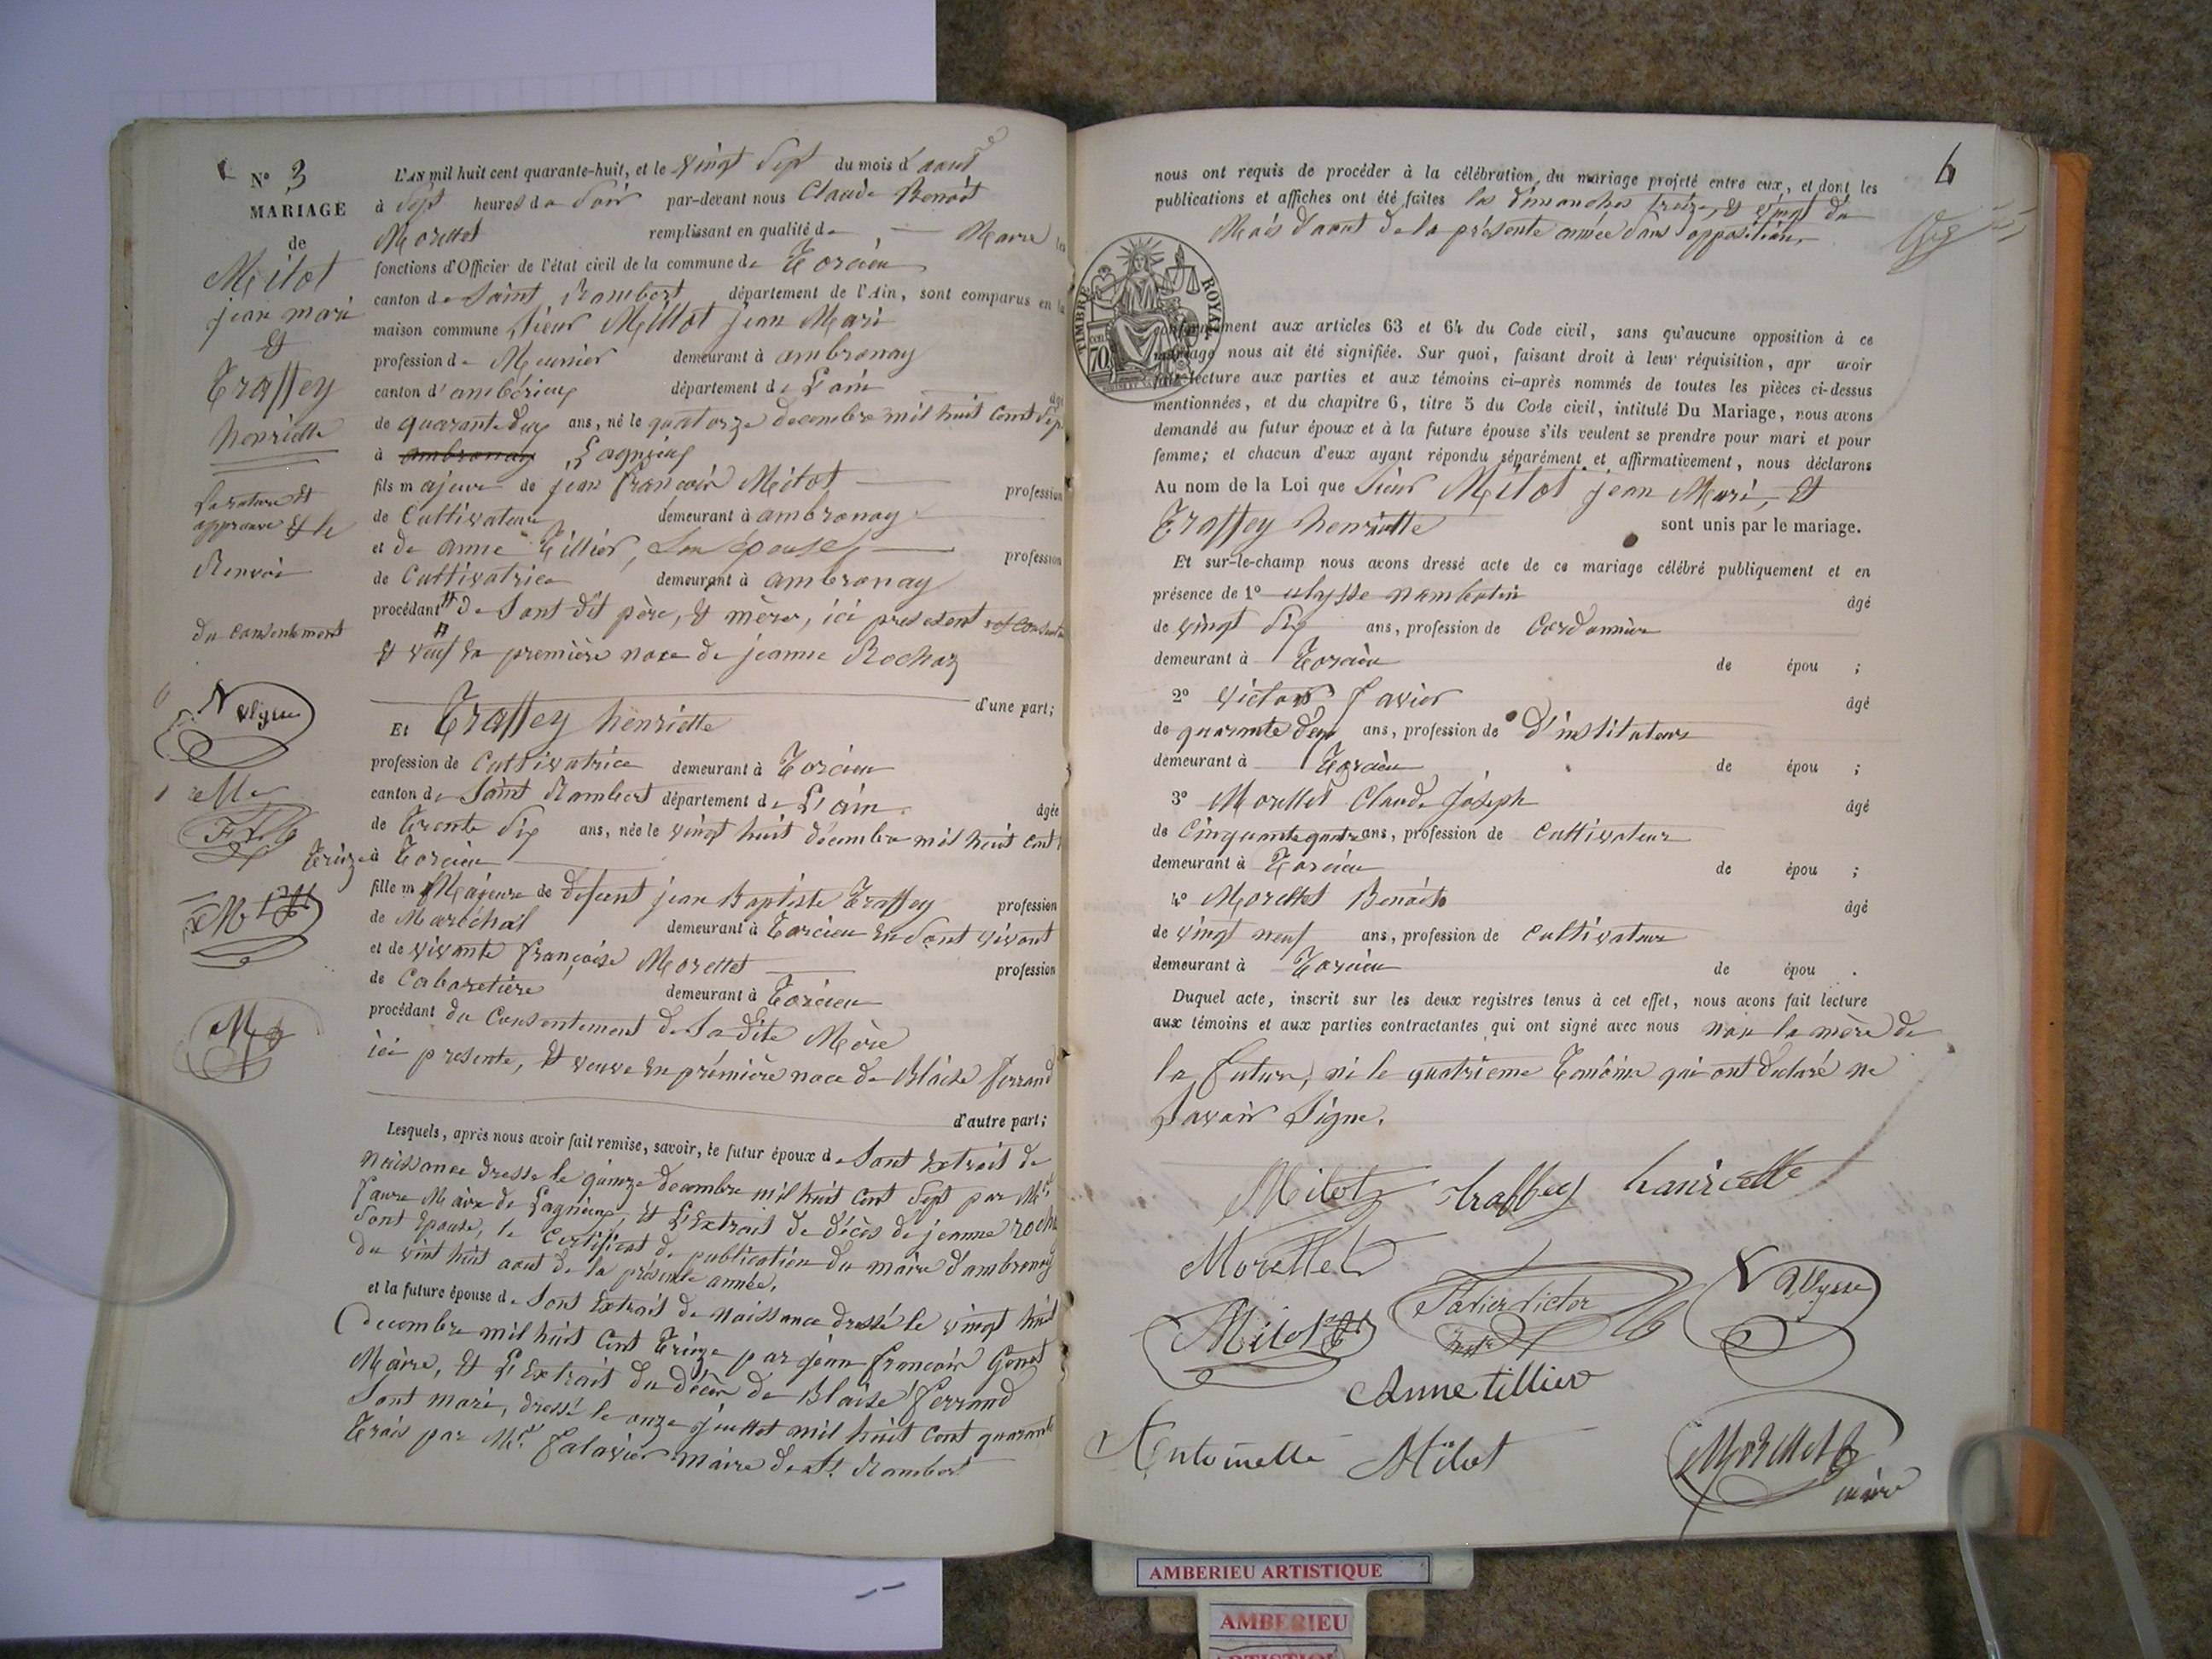 N° 3
MARIAGE
de
Milot
jean mari
&
Traffey
henriette
La rature et
approuvé & le
Renvoi
du consentement
N Ulysse
L'AN mil huit cent quarante-huit, et le vingt Sept du mois d'aout
à Sept heures du Soir par-devant nous Claude Benoit
Morettet remplissant en qualité de Maire les
fonctions d'Officier de l'état civil de la commune de Torcieu
canton de Saint Rambert département de l'Ain, sont comparus en la
maison commune Sieur Millot jean Mari
profession de Meunier demeurant à ambronay
canton d'ambérieux département de L'ain âgé
de quarante deux ans, né le quatorze decembre mil huit Cent Sept
à ambronay Lagnieux
fils majeur de jean francoir Milot profession
de Cultivateur demeurant à ambronay
et de anne Tillier, Son épouse, profession
de Cultivatrice demeurant à ambronay
procédant # de Sont dit père, & mère, ici present
& veuf En première noce de jeanne Rochaz
d'une part;
Et Traffey henriette
profession de Cultivatrice demeurant à Torcieu
canton de Saint Rambert département de L'ain âgée
de Trente Six ans, née le vingt huit décembre mil huit Cent
Treize à Torcieu
fille m Majeure de defunt jean Baptiste Traffey profession
de Maréchal demeurant à Torcieu En Sont vivant
et de vivante françoise Morettet profession
de Cabaretière demeurant à Torcieu
procédant du Consentement de Sa dite Mère
ici presente, & veuve En prémière noce de Blaise ferrand
d'autre part;
Lesquels, après nous avoir fait remise, savoir, le futur époux de Sont Extrait de
naissance dressé le quinze decembre mil huit Cent Sept par Mr
faure Maire de Lagnieux, & L'Extrait de décès de jeanne roch
Sont Epouse, le Certificat de publication du maire d'ambronay
du vint huit aout de la présente année,
et la future épouse de Sont Extrait de naissance dressé le vingt huit
decembre mil huit Cent Treize par jean francoir Genet
Maire, & L'Extrait du décès de Blaise ferrand
Sont mari, dressé le onze juillet mil huit Cent quarante
Trois par Mr falavier maire de St Rambert
6
nous ont requis de procéder à la célébration du mariage projeté entre eux, et dont les
publications et affiches ont été faites les dimanches treize, & vingt du
Mois d'aout de la présente année Sans opposition,
TIMBRE ROYAL
70 cent
conformément aux articles 63 et 64 du Code civil, sans qu'aucune opposition à ce
mariage nous ait été signifiée. Sur quoi, faisant droit à leur réquisition, apr avoir
fait lecture aux parties et aux témoins ci-après nommés de toutes les pièces ci-dessus
mentionnées, et du chapitre 6, titre 5 du Code civil, intitulé Du Mariage, nous avons
demandé au futur époux et à la future épouse s'ils veulent se prendre pour mari et pour
femme; et chacun d'eux ayant répondu séparément et affirmativement, nous déclarons
Au nom de la Loi que Sieur Milot jean Mari, &
Traffey henriette sont unis par le mariage.
Et sur-le-champ nous avons dressé acte de ce mariage célébré publiquement et en
présence de 1° ulysse nambotin âgé
de vingt Six ans, profession de Cordonnier
demeurant à Torcieu de épou ;
2° victor favier âgé
de quarante deux ans, profession de d'instituteur
demeurant à Torcieu de épou ;
3° Morettet Claude Joseph âgé
de Cinquante quatre ans, profession de Cultivateur
demeurant à Torcieu de épou ;
4° Morettet Benoit âgé
de vingt neuf ans, profession de Cultivateur
demeurant à Torcieu de épou .
Duquel acte, inscrit sur les deux registres tenus à cet effet, nous avons fait lecture
aux témoins et aux parties contractantes qui ont signé avec nous non la mère de
la future, ni le quatrieme Temoins qui ont declaré ne
Savoir Signe.
Milot traffey hanriette
Morettet
Milot Favier Victor N Ulysse
Anne tillier
Antoinette Milot Morettet
maire
AMBERIEU ARTISTIQUE
AMBERIEU
ARTISTIQUE